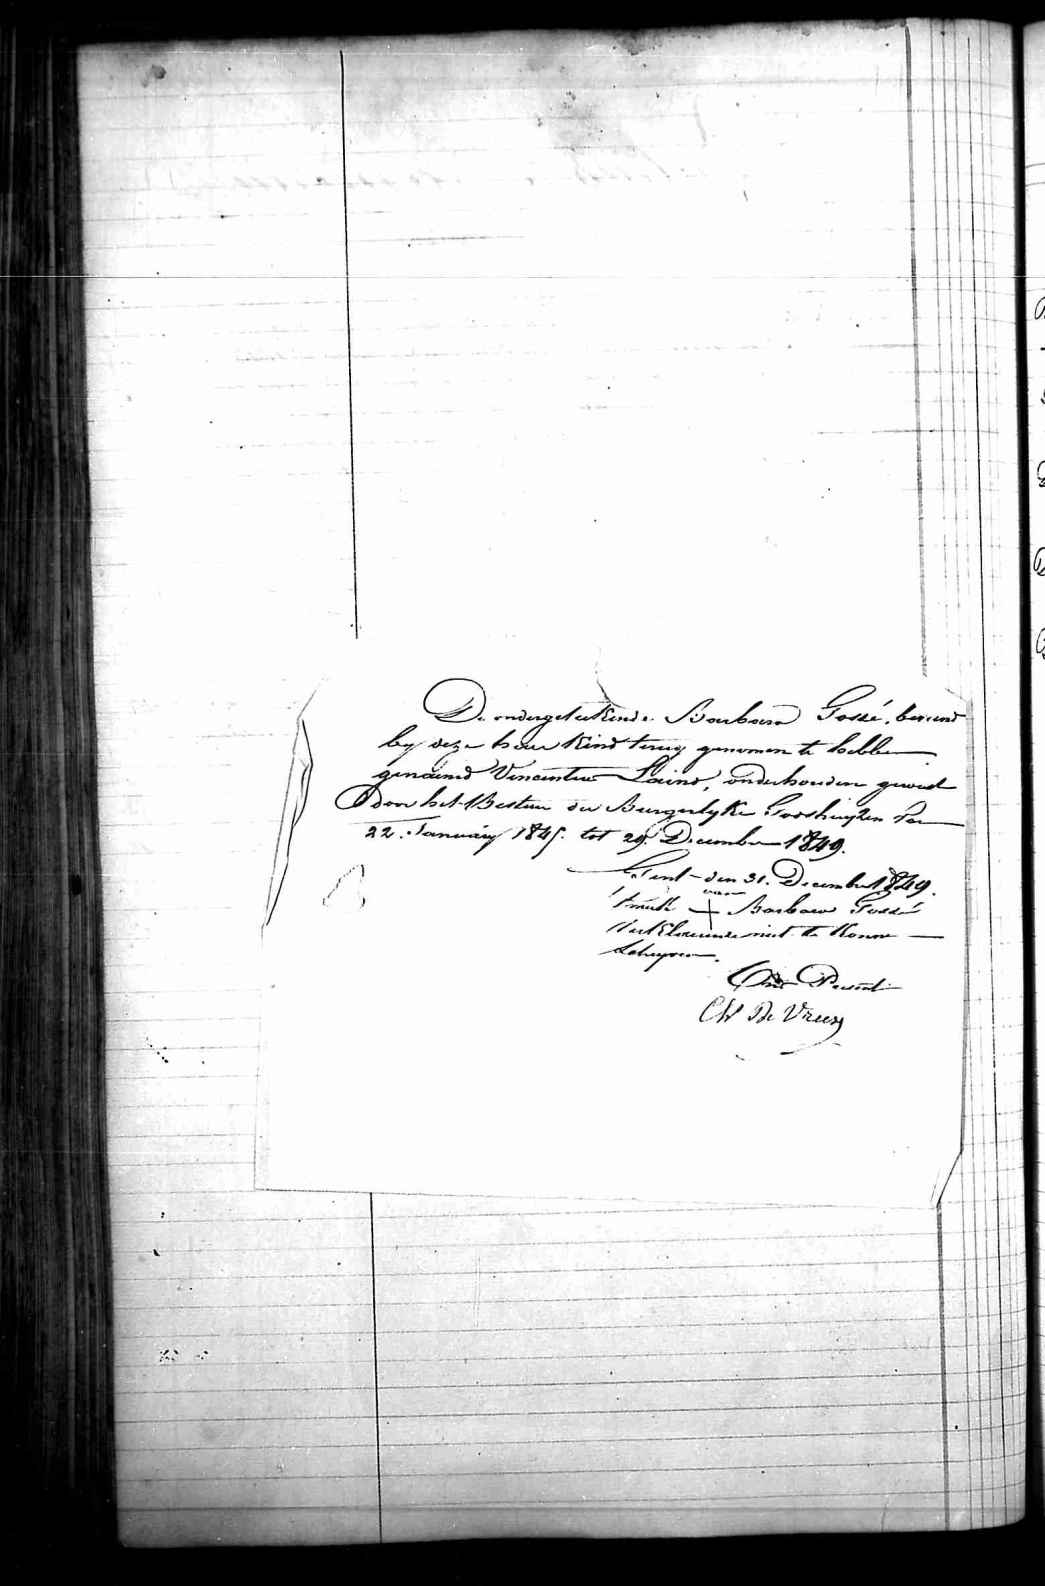 De ondergeteekende Barbara Gossé, bekend
by deze haer Kind terug genomen te hebben
genaemd Vincentius Laind, onderhouden geweest
door het Bestuer der Burgerlyke Godshuyzen van
22. January 1845. tot 29. December 1849.
Gent den 31. December 1849.
t'merk van Barbara Gossé
Verklaerende niet te konnen
Schryven.
Present
Ch De Vreese